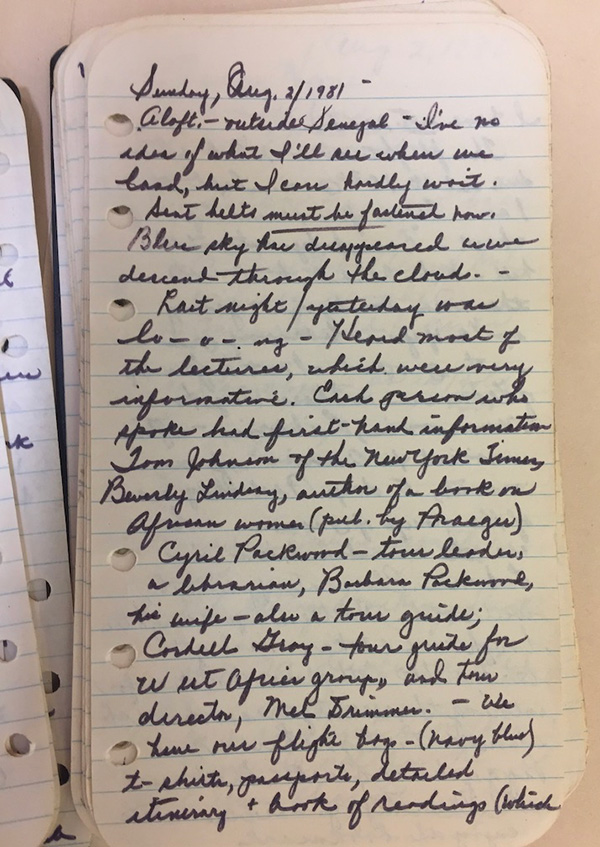 Sunday, Aug. 2/1981 -
Aloft. - outside Senegal - I've no
idea of what I'll see when we
land, but I can hardly wait.
Seat belts must be fastened now.
Blue sky has disappeared as we
descend through the clouds. -
Last night/yesterday was
lo-o-ng - Heard most of
the lectures, which were very
informative. Each person who
spoke had first-hand information
Tom Johnson of the New York Times,
Beverly Lindsay, author of a book on
African women (pub. by Praeger)
Cyril Packwood - tour leader,
a librarian, Barbara Packwood,
his wife - also a tour guide;
Cordell Gray - tour guide for
West Africa group, and tour
director, Mel Drimmer. - We
have our flight bags - (navy blue)
t-shirts, passports, detailed
itinerary + book of readings (which